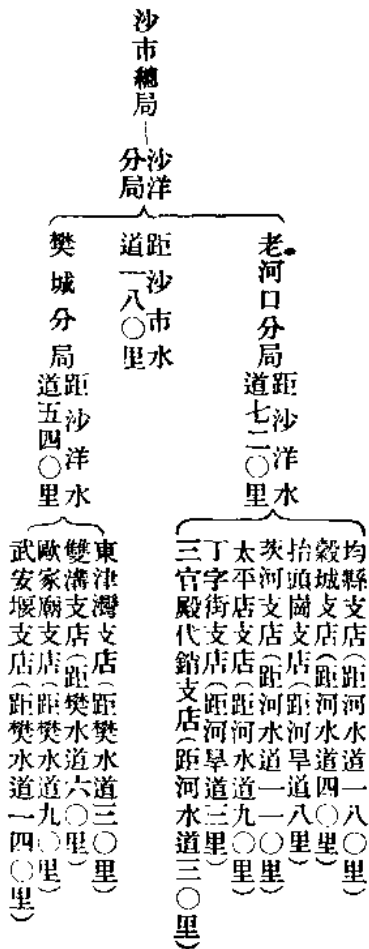 沙市總局
沙洋
分局
距沙市水
道一八〇里
老河口分局
距沙洋水
道七二〇里
均縣支店（距河水道一八〇里）
穀城支店（距河水道四〇里）
抬頭崗支店（距河旱道八里）
茨河支店（距河水道一一〇里）
太平店支店（距河水道九〇里）
丁字街支店（距河旱道三里）
三官殿代銷支店（距河水道三〇里）
樊城分局
距沙洋水
道五四〇里
東津灣支店（距樊水道三〇里）
雙溝支店（距樊水道六〇里）
歐家廟支店（距樊水道九〇里）
武安堰支店（距樊水道一四〇里）